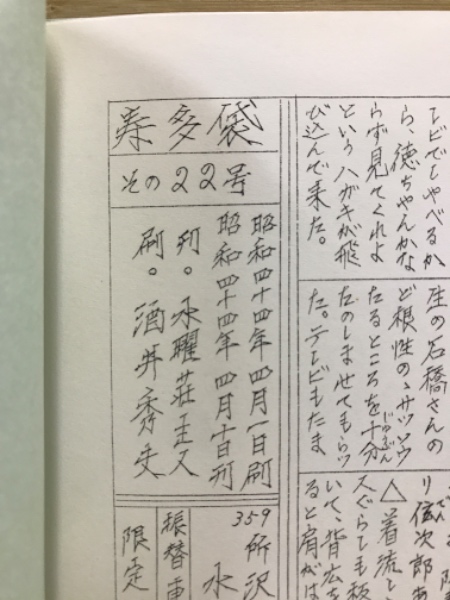 寿多袋
その22号
昭和四十四年四月一日刷
昭和四十四年四月十日刊
刊。水曜荘主人
刷。酒井秀夫
359所沢
水
振替
限定
テレビでしゃべるか
ら、徳ちゃんかな
らず見てくれよ
というハガキが飛
び込んで来た。
生の石橋さんの
ど根性の、サッソウ
たるところを十分
じゅぶん
たのしませてもらっ
た。テレビもたま
リ信次郎
△着流し
スぐらても
いて、背広を
ると肩がは